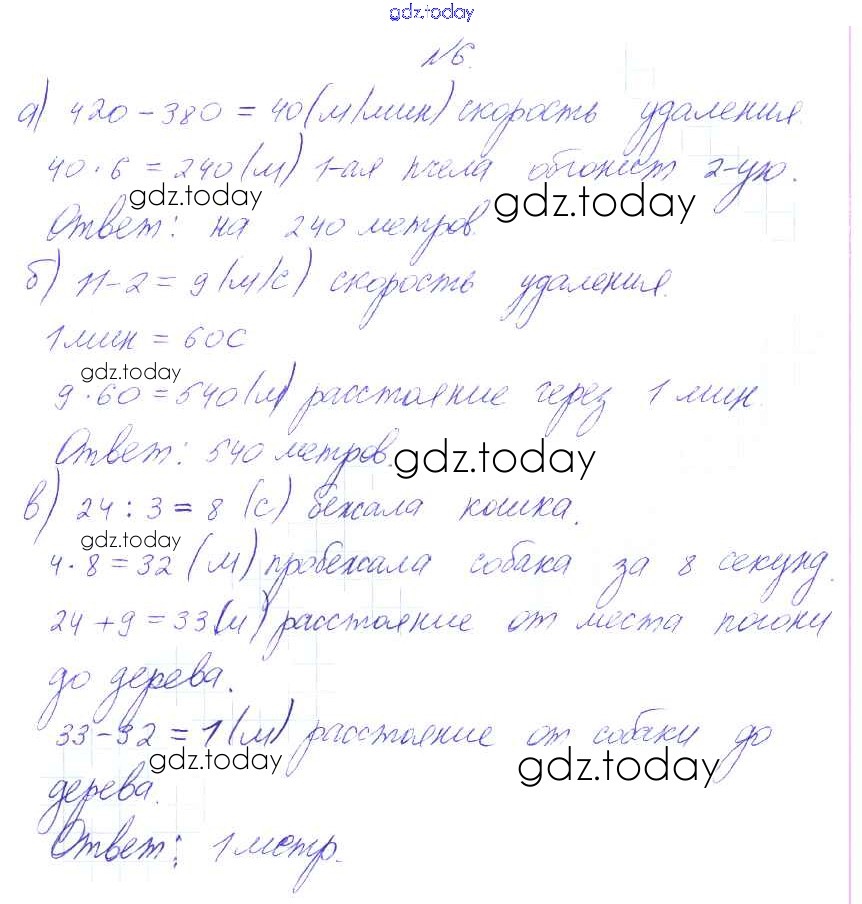 gdz.today
№6.
а) 420 - 380 = 40 (м/мин) скорость удаления.
40 · 6 = 240 (м) 1-ая пчела обгонит 2-ую.
gdz.today gdz.today
Ответ: на 240 метров.
б) 11 - 2 = 9 (м/с) скорость удаления.
1 мин = 60 с
gdz.today
9 · 60 = 540 (м) расстояние через 1 мин.
Ответ: 540 метров.
gdz.today
в) 24 : 3 = 8 (с) бежала кошка.
gdz.today
4 · 8 = 32 (м) пробежала собака за 8 секунд.
24 + 9 = 33 (м) расстояние от места погони
до дерева.
33 - 32 = 1 (м) расстояние от собаки до
gdz.today gdz.today
дерева.
Ответ: 1 метр.